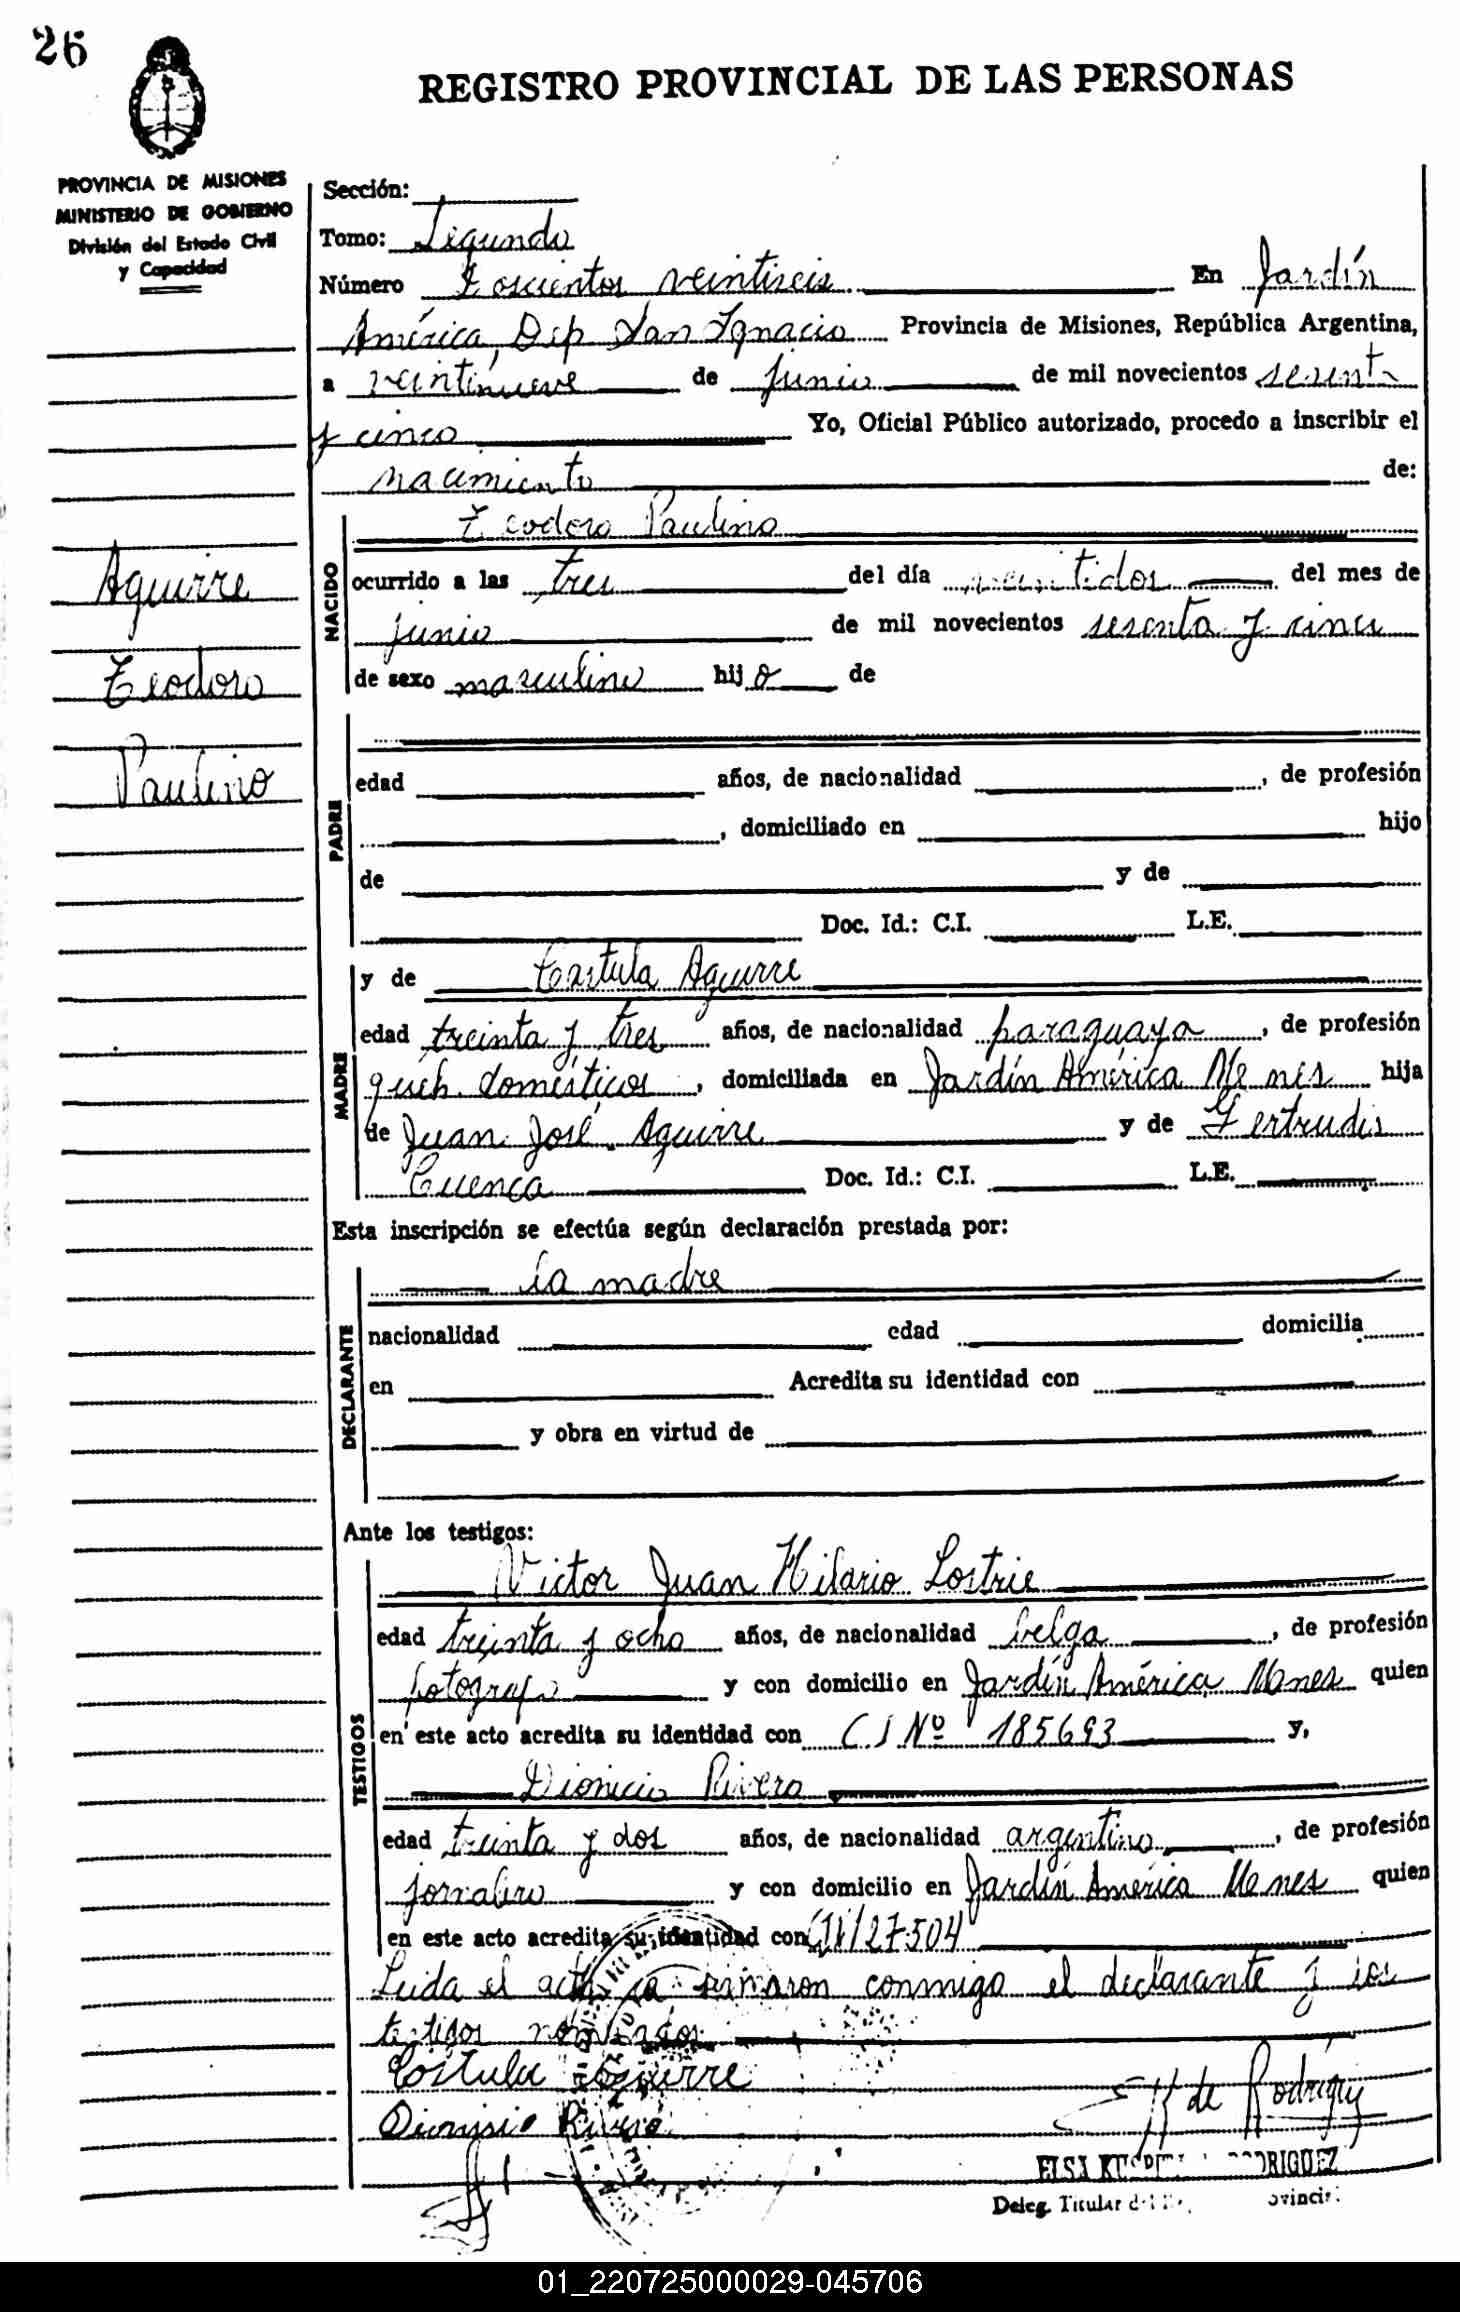 26
REGISTRO PROVINCIAL DE LAS PERSONAS
PROVINCIA DE MISIONES
MINISTERIO DE GOBIERNO
División del Estado Civil
y Capacidad
Sección:
Tomo: Segundo
Número Doscientos veintiseis En Jardín
América, Dep San Ignacio Provincia de Misiones, República Argentina,
a veintinueve de junio de mil novecientos sesenta
y cinco Yo, Oficial Público autorizado, procedo a inscribir el
nacimiento de:
Aguirre
Teodoro
Paulino
NACIDO
Teodoro Paulino
ocurrido a las tres del día veintidos del mes de
junio de mil novecientos sesenta y cinco
de sexo masculino hijo de
PADRE
edad años, de nacionalidad , de profesión
, domiciliado en hijo
de y de
Doc. Id.: C.I. L.E.
MADRE
y de Castula Aguirre
edad treinta y tres años, de nacionalidad paraguaya , de profesión
queh. domésticos , domiciliada en Jardín América Mnes hija
de Juan José Aguirre y de Gertrudis
Cuenca Doc. Id.: C.I. L.E.
Esta inscripción se efectúa según declaración prestada por:
DECLARANTE
la madre
nacionalidad edad domicilia
en Acredita su identidad con
y obra en virtud de
Ante los testigos:
TESTIGOS
Victor Juan Hilario Lostrie
edad treinta y ocho años, de nacionalidad belga , de profesión
fotografo y con domicilio en Jardín América Mnes quien
en este acto acredita su identidad con C I Nº 185693 y,
Dionicio Rivero
edad treinta y dos años, de nacionalidad argentino , de profesión
jornalero y con domicilio en Jardín América Mnes quien
en este acto acredita su identidad con 127504
Leida el acta la firmaron conmigo el declarante y los
testigos nombrados
Castula Aguirre
Dionisio Rivero
E K de Rodriguez
ELSA RODRIGUEZ
Deleg. Titular
01_220725000029-045706